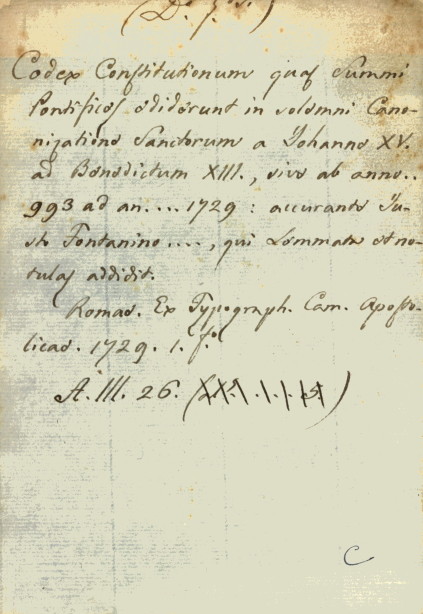 Codex Constitutionum quas Summi
Pontifices ediderunt in solemni Cano-
nizatione Sanctorum a Johanne XV.
ad Benedictum XIII., sive ab anno..
993 ad an.... 1729 : accurante Ju-
sto Fontanino...., qui Lemmata et no-
tulas addidit.
Romae. Ex Typograph. Cam. Aposto-
licae. 1729. 1. f.º
A. III. 26.
C